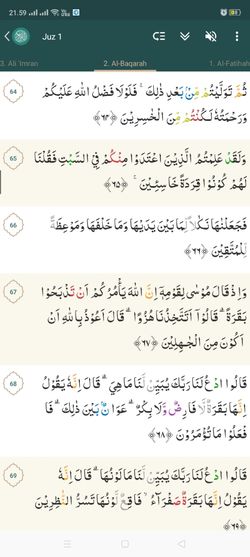 21.59
Juz 1
3. Ali 'Imran
2. Al-Baqarah
1. Al-Fatihah
64
ثُمَّ تَوَلَّيْتُمْ مِّنْۢ بَعْدِ ذٰلِكَ ۚ فَلَوْلَا فَضْلُ اللّٰهِ عَلَيْكُمْ
وَرَحْمَتُهٗ لَكُنْتُمْ مِّنَ الْخٰسِرِيْنَ ﴿٦٤﴾
65
وَلَقَدْ عَلِمْتُمُ الَّذِيْنَ اعْتَدَوْا مِنْكُمْ فِى السَّبْتِ فَقُلْنَا
لَهُمْ كُوْنُوْا قِرَدَةً خَاسِـِٕيْنَ ۚ ﴿٦٥﴾
66
فَجَعَلْنٰهَا نَكَالًا لِّمَا بَيْنَ يَدَيْهَا وَمَا خَلْفَهَا وَمَوْعِظَةً
لِّلْمُتَّقِيْنَ ﴿٦٦﴾
67
وَاِذْ قَالَ مُوْسٰى لِقَوْمِهٖٓ اِنَّ اللّٰهَ يَأْمُرُكُمْ اَنْ تَذْبَحُوْا
بَقَرَةً ۗ قَالُوْٓا اَتَتَّخِذُنَا هُزُوًا ۗ قَالَ اَعُوْذُ بِاللّٰهِ اَنْ
اَكُوْنَ مِنَ الْجٰهِلِيْنَ ﴿٦٧﴾
68
قَالُوا ادْعُ لَنَا رَبَّكَ يُبَيِّنْ لَّنَا مَا هِيَ ۗ قَالَ اِنَّهٗ يَقُوْلُ
اِنَّهَا بَقَرَةٌ لَّا فَارِضٌ وَّلَا بِكْرٌ ۗ عَوَانٌۢ بَيْنَ ذٰلِكَ ۗ فَا
فْعَلُوْا مَا تُؤْمَرُوْنَ ﴿٦٨﴾
69
قَالُوا ادْعُ لَنَا رَبَّكَ يُبَيِّنْ لَّنَا مَا لَوْنُهَا ۗ قَالَ اِنَّهٗ
يَقُوْلُ اِنَّهَا بَقَرَةٌ صَفْرَاۤءُ ۙ فَاقِعٌ لَّوْنُهَا تَسُرُّ النّٰظِرِيْنَ
﴿٦٩﴾